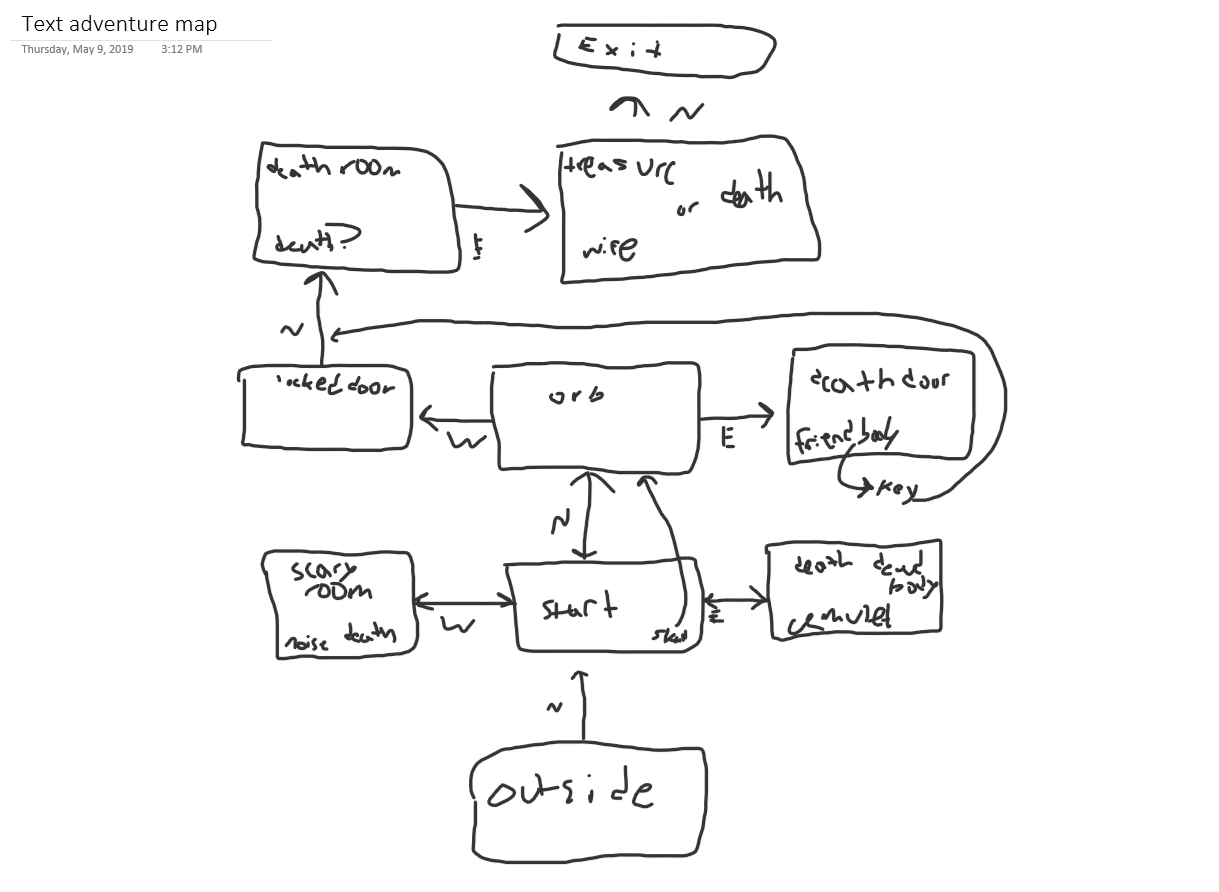 Text adventure map
Thursday, May 9, 2019 3:12 PM
Exit
N
death room
death?
E
treasure
or death
N
locked door
W
orb
E
death door
friend body
key
N
scary
room
noise death
W
start
E
death dead
body
amulet
N
outside